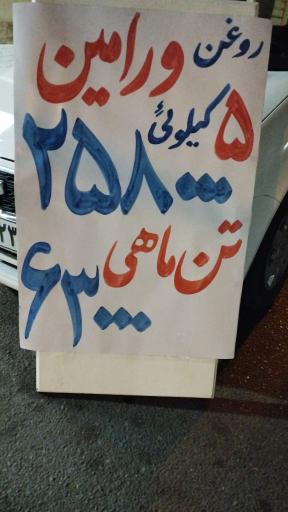 روغن ورامین
۵ کیلوئی
۲۵۸۰۰۰
تن ماهی
۶۳۰۰۰
۲۳